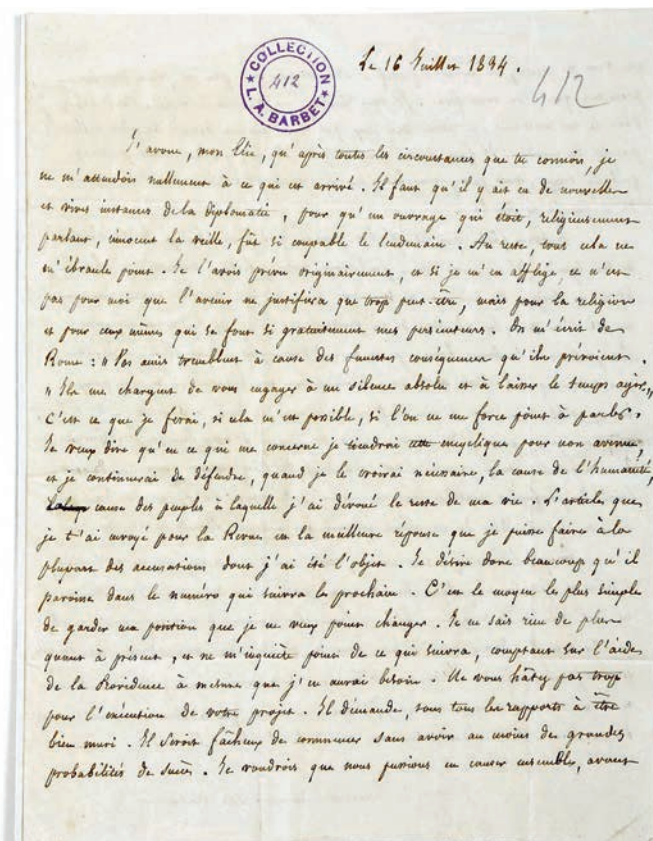 COLLECTION
412
L. A. BARBET
Le 16 Juillet 1834.
412
J'avoue, mon Elie, qu'après toutes les circonstances que tu connois, je
ne m'attendois nullement à ce qui est arrivé. Il faut qu'il y ait eu de nouvelles
et vives instances de la diplomatie, pour qu'un ouvrage qui étoit, religieusement
parlant, innocent la veille, fût si coupable le lendemain. Au reste, tout cela ne
m'ébranle point. Je l'avois prévu originairement, et si je m'en afflige, ce n'est
pas pour moi que l'avenir ne justifiera que trop peut-être, mais pour la religion
et pour ceux mêmes qui se font si gratuitement mes persécuteurs. On m'écrit de
Rome : " Vos amis tremblent à cause des funestes conséquences qu'ils prévoient.
" Ils me chargent de vous engager à un silence absolu et à laisser le temps agir "
C'est ce que je ferai, si cela m'est possible, si l'on ne me force point à parler.
Je veux dire qu'en ce qui me concerne je tiendrai cette encyclique pour non avenue,
et je continuerai de défendre, quand je le croirai nécessaire, la cause de l'humanité,
cause des peuples à laquelle j'ai dévoué le reste de ma vie. L'article que
je t'ai envoyé pour la Revue est la meilleure réponse que je puisse faire à la
plupart des accusations dont j'ai été l'objet. Je désire donc beaucoup qu'il
paroisse dans le numéro qui suivra le prochain. C'est le moyen le plus simple
de garder ma position que je ne veux point changer. Je ne sais rien de plus
quant à présent, et ne m'inquiète point de ce qui suivra, comptant sur l'aide
de la Providence à mesure que j'en aurai besoin. Ne vous hâtez pas trop
pour l'exécution de votre projet. Il demande, sous tous les rapports à être
bien muri. Il seroit fâcheux de commencer sans avoir au moins de grandes
probabilités de succès. Je voudrois que nous pussions en causer ensemble, avant